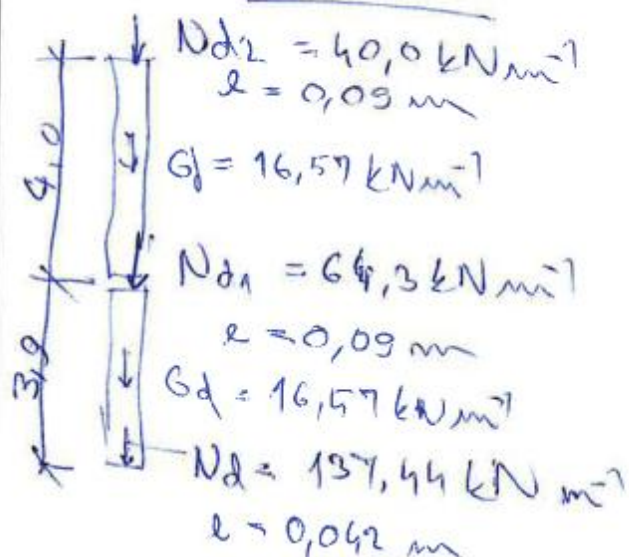 Nd2 = 40,0 kNm⁻¹
e = 0,09 m
4,0
Gd = 16,57 kNm⁻¹
Nd1 = 64,3 kNm⁻¹
e = 0,09 m
3,9
Gd = 16,57 kNm⁻¹
Nd = 137,44 kN m⁻¹
e = 0,042 m